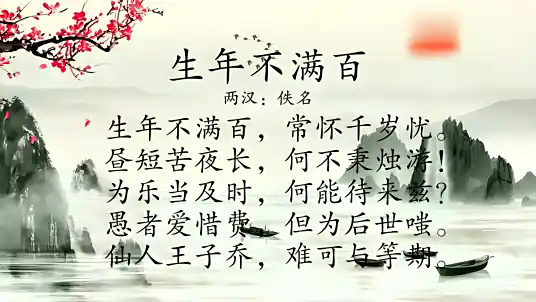 生年不满百
两汉：佚名
生年不满百，常怀千岁忧。
昼短苦夜长，何不秉烛游！
为乐当及时，何能待来兹？
愚者爱惜费，但为后世嗤。
仙人王子乔，难可与等期。